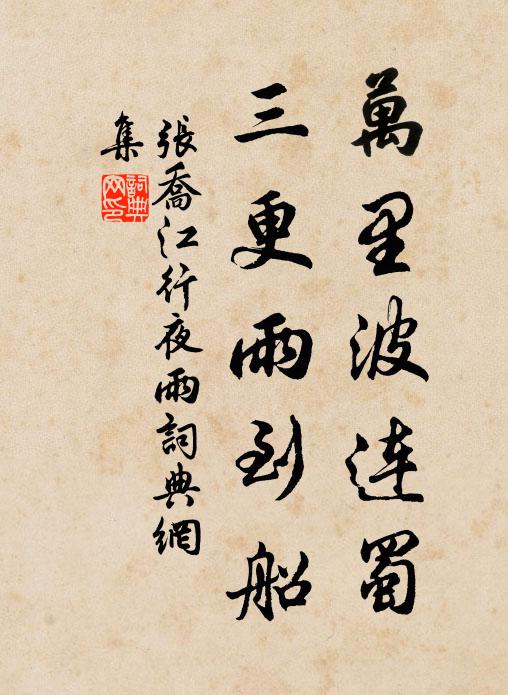 萬里波連蜀
三更雨到船
張喬江行夜雨詞典網
集
詞典
网印